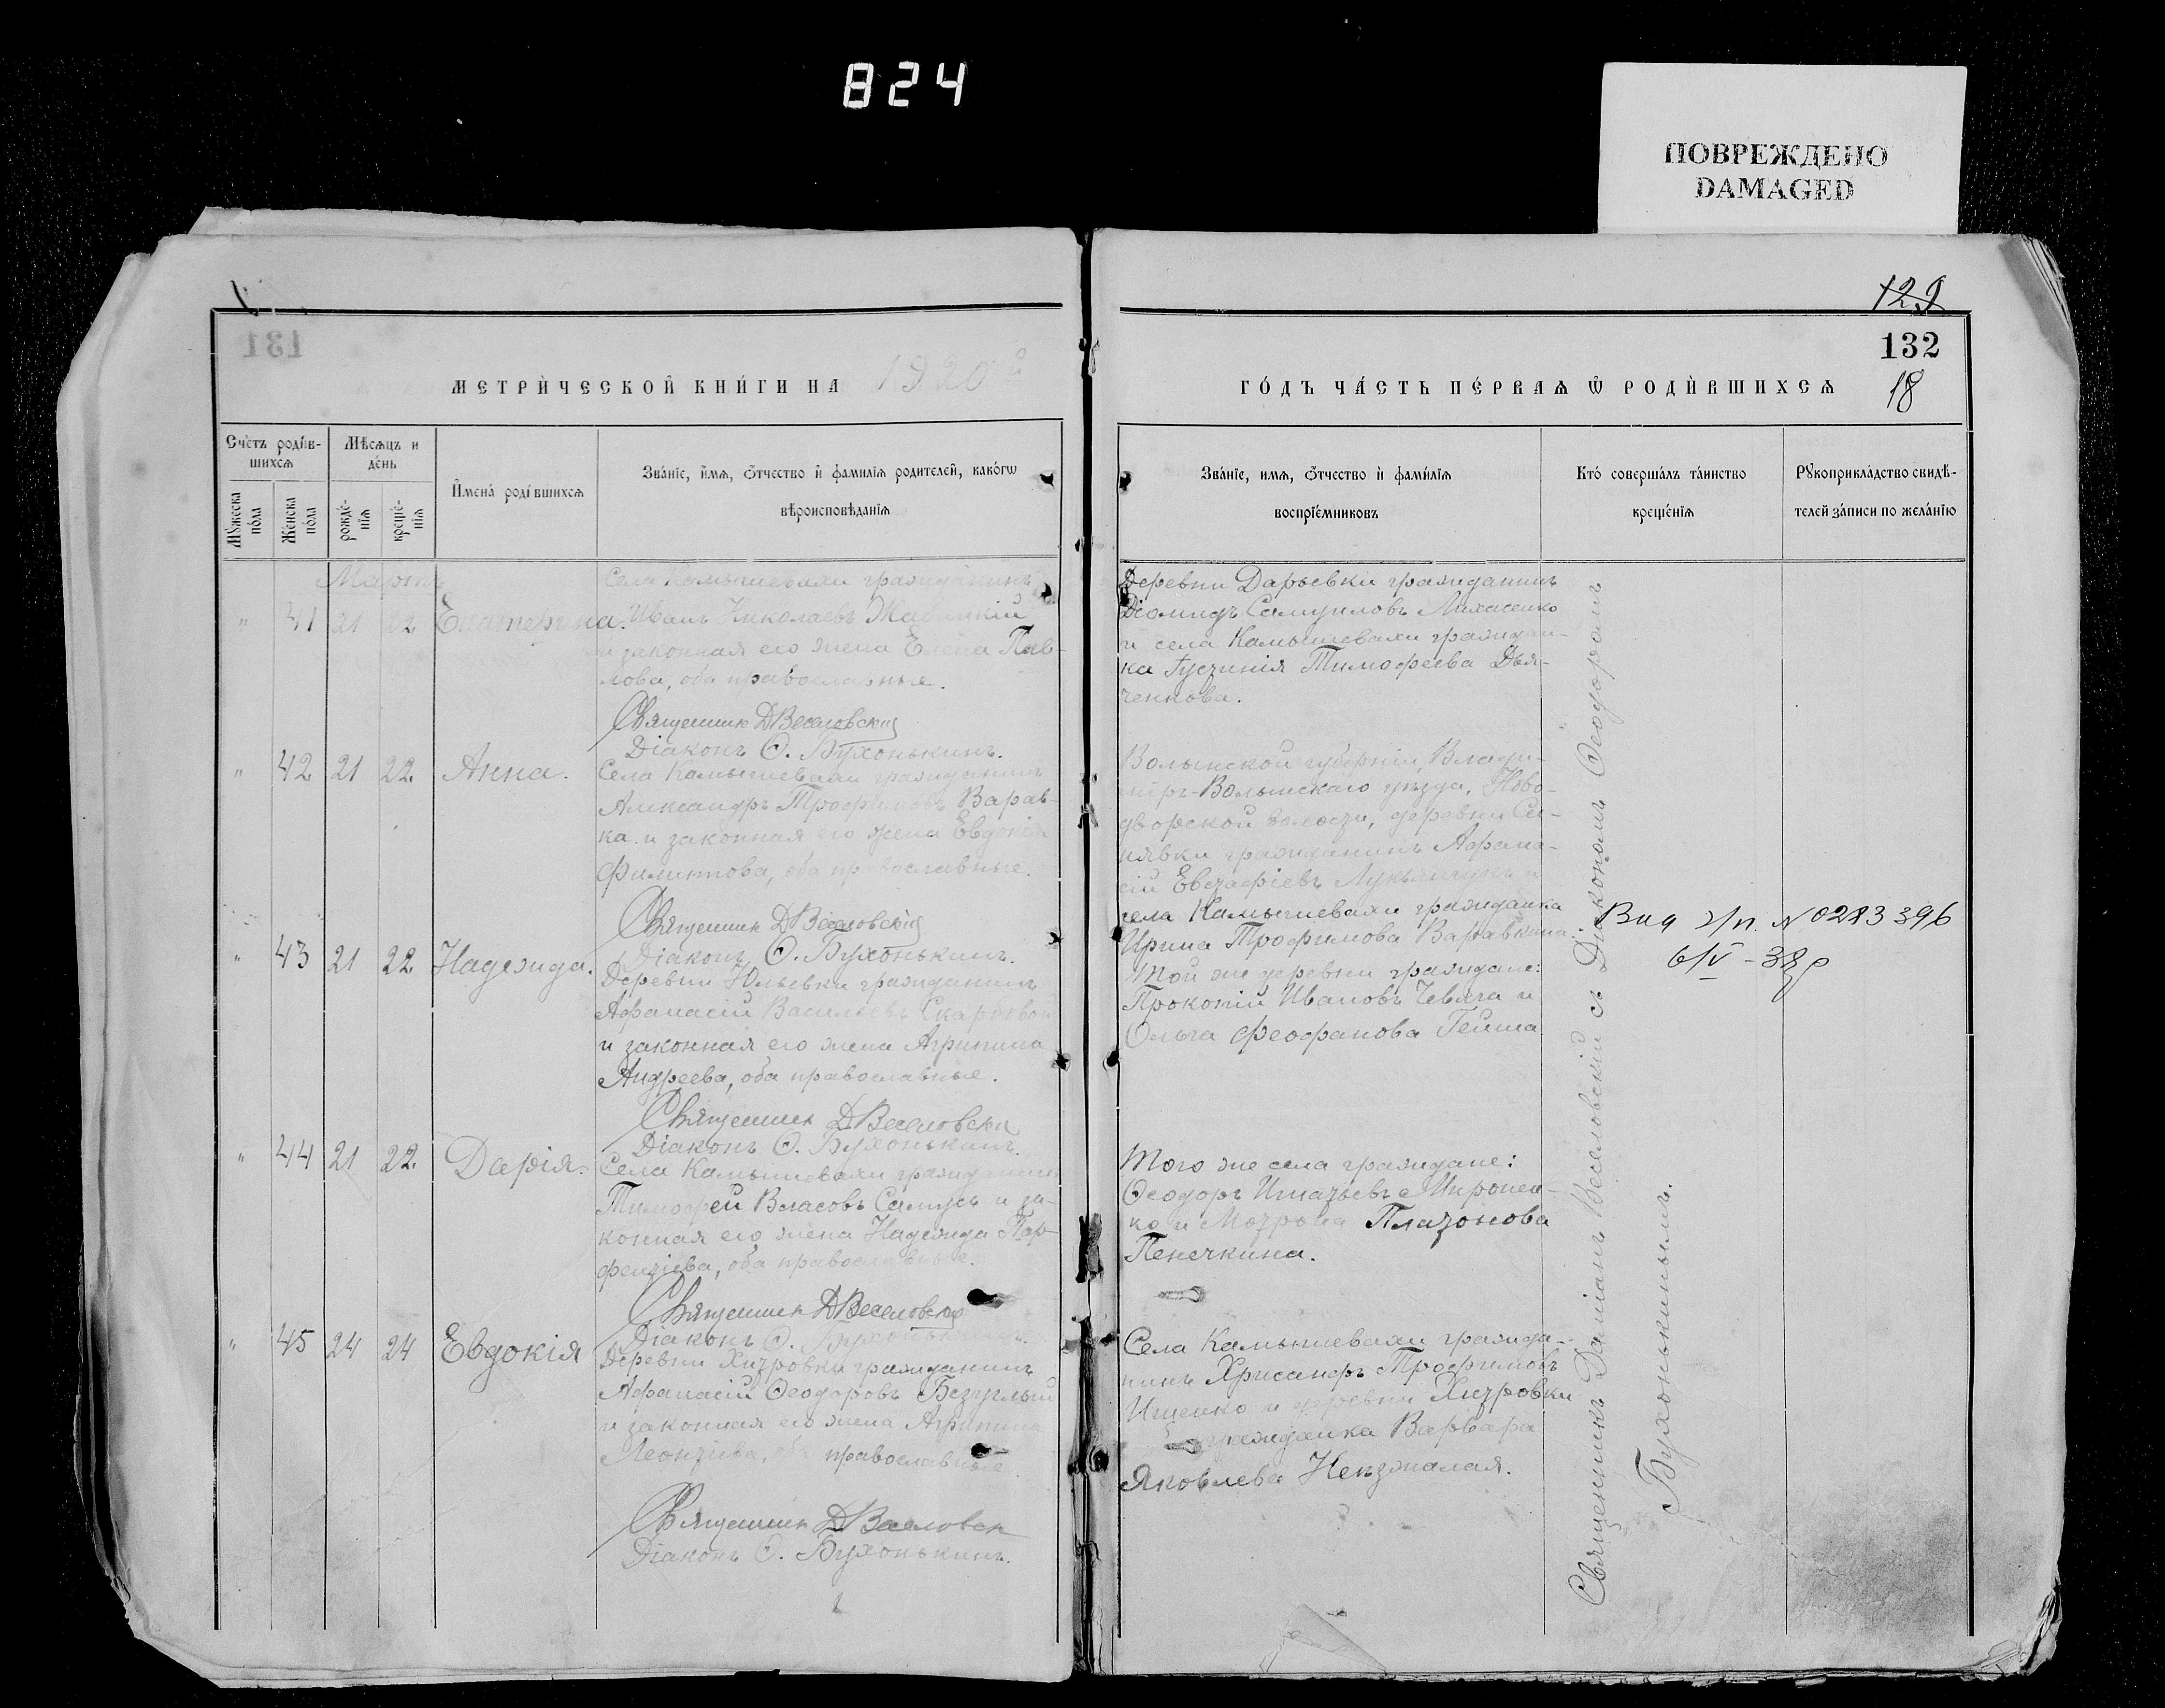 824
ПОВРЕЖДЕНО
DAMAGED
129
132
18
131
МЕТРИ́ЧЕСКОЙ КНИ́ГИ НА 1920 й
ГО́ДЪ ЧА́СТЬ ПЕ́РВАѦ Ѿ РОДИ́ВШИХСѦ
Сче́тъ роди́в-
шихсѧ
Мѣ́сѧцъ и
де́нь
Мꙋ́жеска по́ла
Же́нска по́ла
рожде́-
нїѧ
креще́-
нїѧ
И҆мена̀ роди́вшихсѧ
Зва́нїе, и҆́мѧ, ѻ҆́тчество и҆ фами́лїѧ роди́телей, како́гѡ
вѣроисповѣ́данїѧ
Зва́нїе, и҆́мѧ, ѻ҆́тчество и҆ фами́лїѧ
воспрїе́мниковъ
Кто̀ соверша́лъ та́инство
креще́нїѧ
Рꙋкоприкла́дство свидѣ́-
телей за́писи по жела́нїю
Мартъ
" 41 21 22 Екатерина.
Села Камышевахи гражданинъ
Иванъ Николаевъ
и законная его жена Елена Пав-
лова, оба православные.
Священник Д Веселовский
Діаконъ Ѳ. Бухонькинъ.
Деревни Дарьевки гражданинъ
Діомидъ Самуиловъ Лихасенко
и села Камышевахи граждан-
ка Іустинія Тимофеева Дья-
ченкова.
" 42 21 22 Анна.
Села Камышевахи гражданинъ
Александръ Трофимовъ Варав-
ка и законная его жена Евдокія
Филиппова, оба православные.
Священник Д Веселовский
Діаконъ Ѳ. Бухонькинъ.
Волынской губерніи, Влади-
міръ-Волынскаго уѣзда, Ново-
дворской волости, деревни Се-
нявки гражданинъ Афана-
сій Евстафіевъ Лукьянчукъ и
села Камышевахи гражданка
Ирина Трофимова Варавкина.
" 43 21 22 Надежда.
Деревни Юльевки гражданинъ
Афанасій Васильевъ
и законная его жена Агрипина
Андреева, оба православные.
Священник Д Веселовски
Діаконъ Ѳ. Бухонькинъ.
Той же деревни граждане:
Прокопій Ивановъ Чевяга и
Ольга Феофанова Гейша.
" 44 21 22 Дарія.
Села Камышевахи гражданинъ
Тимофей Власовъ Самусь и за-
конная его жена Надежда Пар-
фентіева, оба православные.
Священник Д Веселовски
Діаконъ Ѳ. Бухонькинъ.
Того же села граждане:
Ѳеодоръ Игнатьевъ Миронен-
ко и Мотрона Платонова
Пенечкина.
" 45 24 24 Евдокія
Деревни Хитровки гражданинъ
Афанасій Ѳеодоровъ Безуглый
и законная его жена Агрипина
Леонтіева, оба православные
Священник Д Веселовск
Діаконъ Ѳ. Бухонькинъ.
Села Камышевахи гражда-
нинъ Хрисанфъ Трофимовъ
Ищенко и деревни Хитровки
гражданка Варвара
Яковлева
Священникъ Даміанъ Веселовскій съ Діакономъ Ѳеодоромъ
Бухонькинымъ.
№ 0283396
6/V - 38